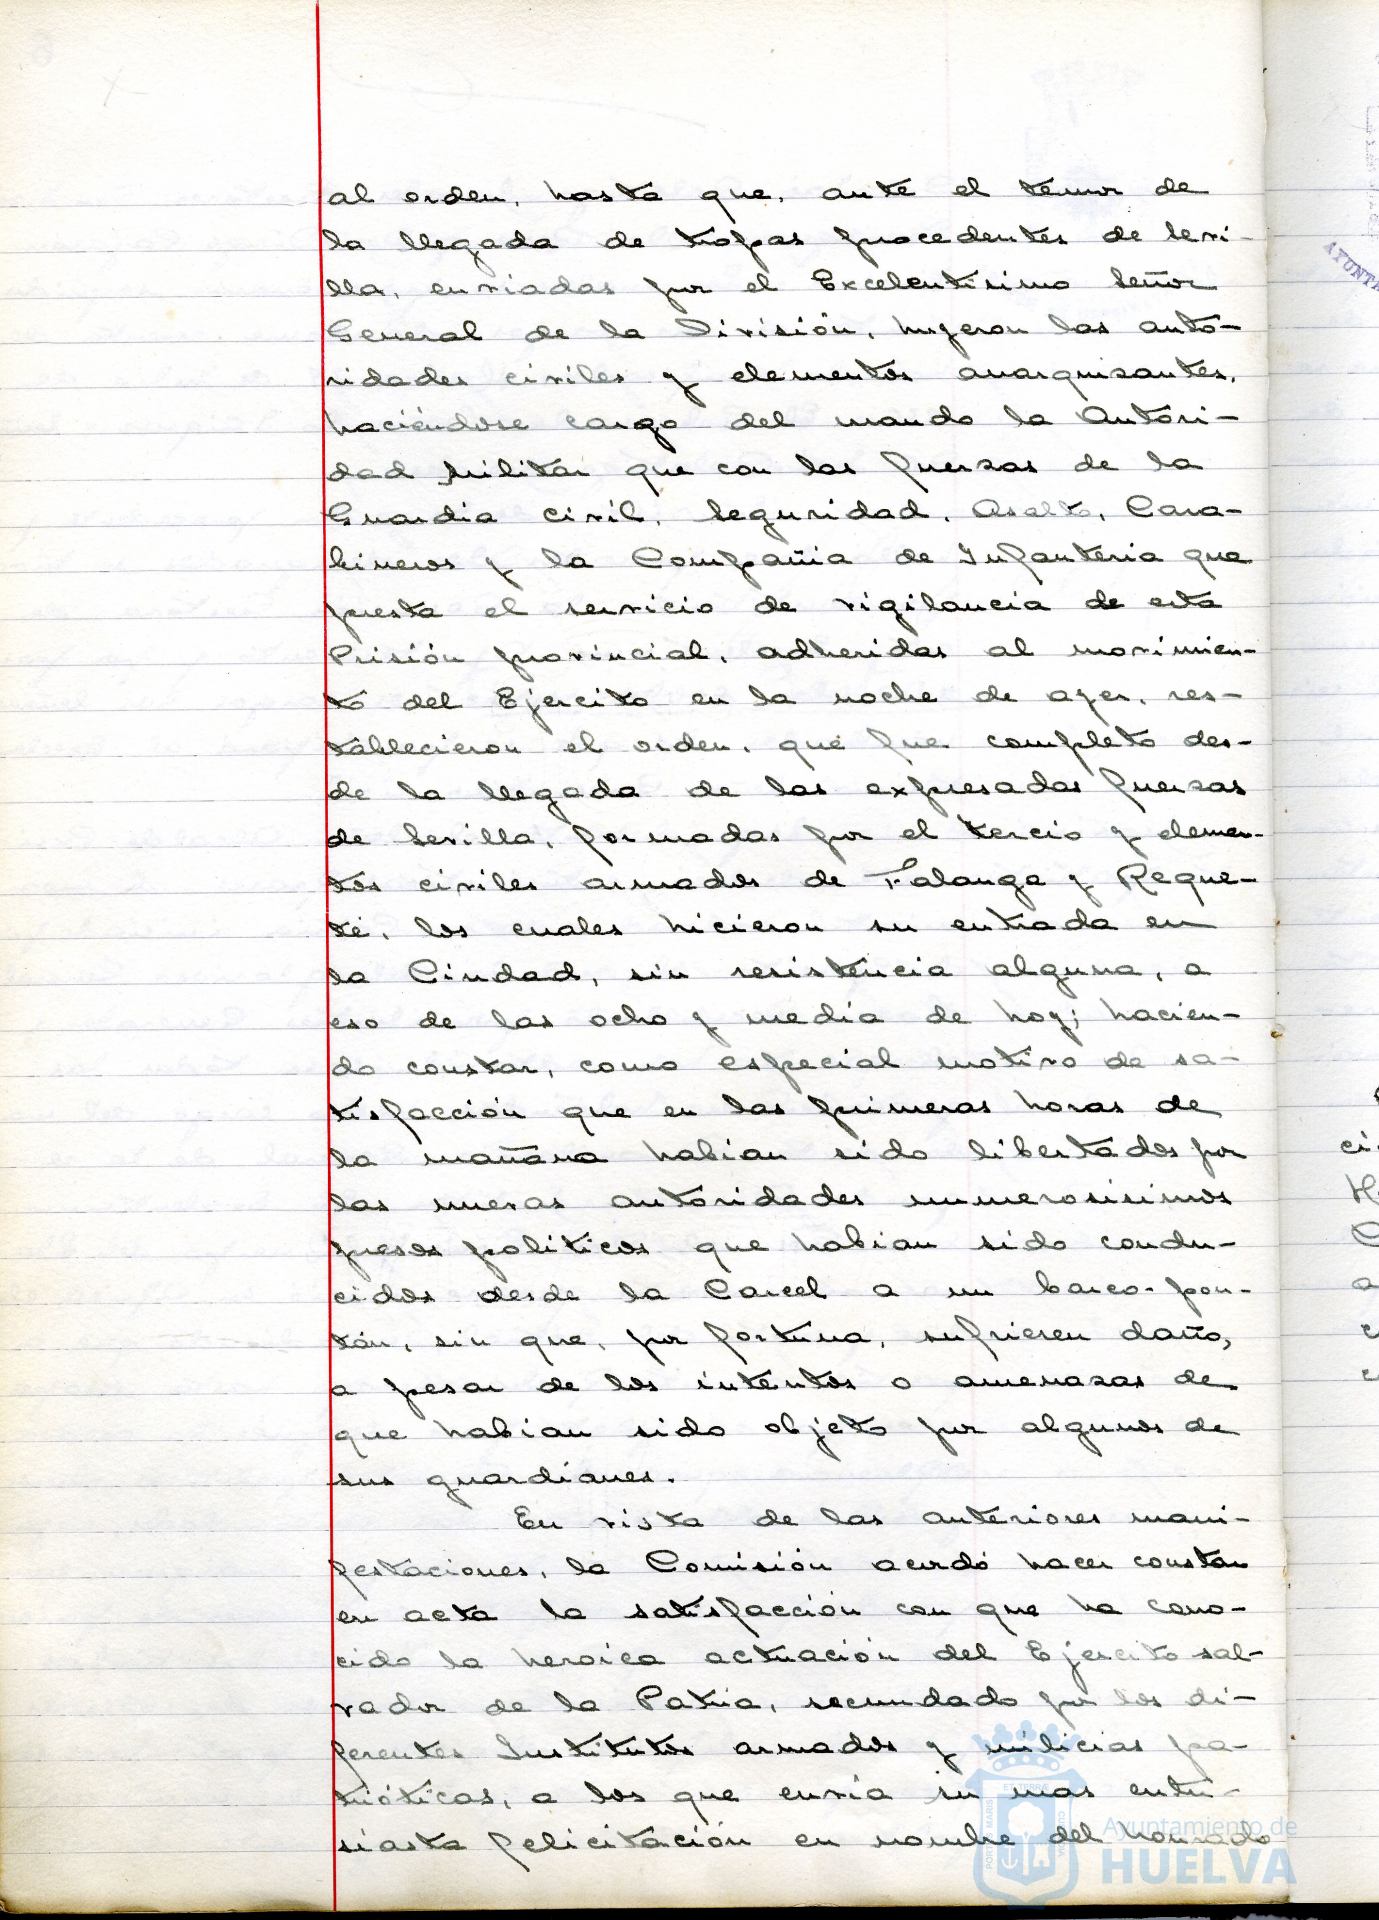 al orden, hasta que, ante el temor de
la llegada de tropas procedentes de Sevi-
lla, enviadas por el Excelentísimo Señor
General de la División, huyeron las auto-
ridades civiles y elementos anarquisantes,
haciéndose cargo del mando la Autori-
dad Militar que con las fuerzas de la
Guardia civil, Seguridad, Asalto, Cara-
bineros y la Compañia de Infanteria que
presta el servicio de vigilancia de esta
Prisión provincial, adheridas al movimien-
to del Ejercito en la noche de ayer, res-
tablecieron el orden, que fue completo des-
de la llegada de las expresadas fuerzas
de Sevilla, formadas por el tercio y elemen-
tos civiles armados de Falange y Reque-
té, los cuales hicieron su entrada en
la Ciudad, sin resistencia alguna, a
eso de las ocho y media de hoy; hacien-
do constar, como especial motivo de sa-
tisfacción que en las primeras horas de
la mañana habian sido libertados por
las nuevas autoridades numerosisimos
presos politicos que habian sido condu-
cidos desde la Carcel a un barco-pon-
tón, sin que, por fortuna, sufrieren daño,
a pesar de los intentos o amenazas de
que habian sido objeto por algunos de
sus guardianes.
En vista de las anteriores mani-
festaciones, la Comisión acordó hacer constar
en acta la satisfacción con que ha cono-
cido la heroica actuación del Ejercito sal-
vador de la Patria, secundado por los di-
ferentes Institutos armados y milicias pa-
trióticas, a los que envía su mas entu-
siasta felicitación en nombre del honrado
Ayuntamiento de
HUELVA